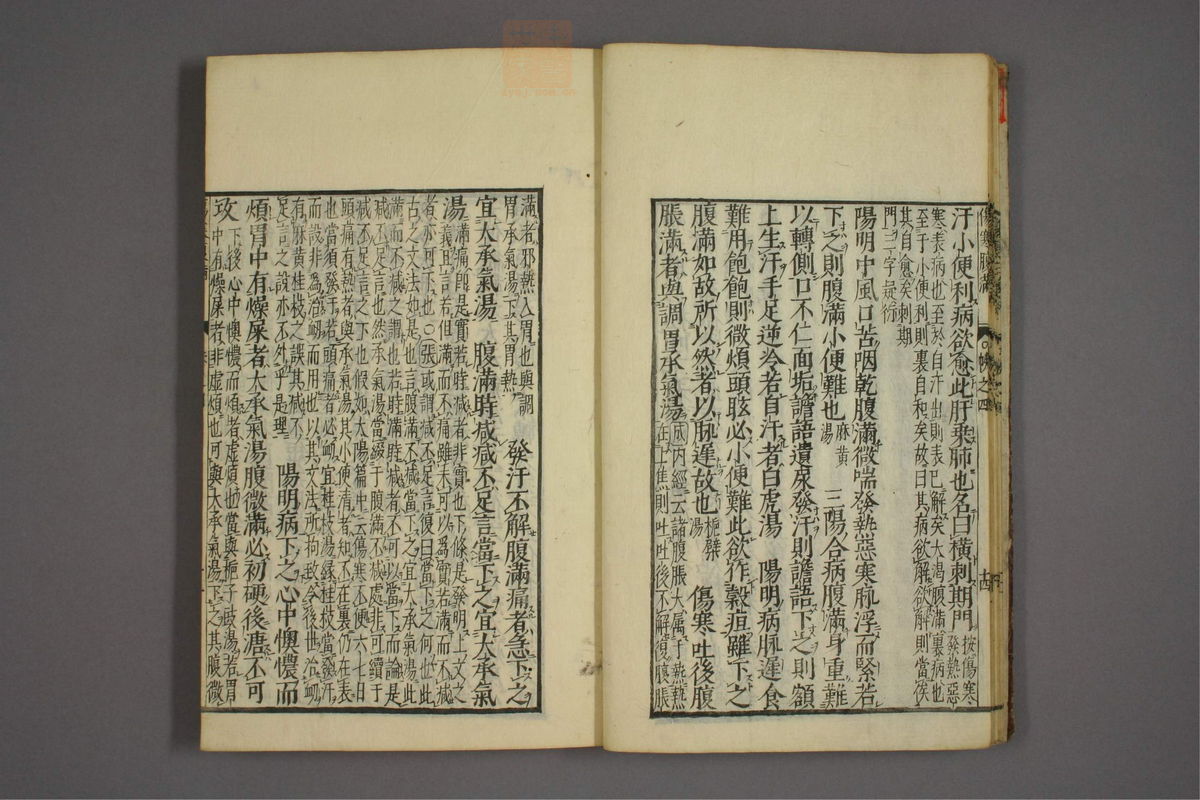 汗小便利病欲愈此肝乘肺也名曰橫刺期門按傷寒
寒表病也至於自汗出則表已解矣大渴腹滿裏病也發熱惡
至于小便利則裏自和矣故曰其病欲解欲解則當俟
其自愈矣刺期
門三字疑衍
陽明中風口苦咽乾腹滿微喘發熱惡寒脈浮而緊若
下之則腹滿小便難也麻黃湯 三陽合病腹滿身重難
以轉側口不仁面垢譫語遺尿發汗則譫語下之則額
上生汗手足逆冷若自汗者白虎湯 陽明病脈遲食
難用飽飽則微煩頭眩必小便難此欲作穀疸雖下之
腹滿如故所以然者以脈遲故也梔蘗湯 傷寒吐後腹
脹滿者與調胃承氣湯成內經云諸腹脹大屬于熱熱在上焦則吐吐後不解復腹脹
滿者邪熱入胃也與調胃承氣湯下其胃熱 發汗不解腹滿痛者急下之
宜大承氣湯 腹滿時減減不足言當下之宜大承氣
湯滿痛卽是實若時減者非實也下條是發明上文之
義宜言若但滿而不痛雖未可以爲實若滿而不減
者亦可下也〇張或謂減不足言復曰當下之何也此
古之文法如是也言腹滿不減當下之宜大承氣湯此
滿而不減之謂也若時滿時減者不可以當下而論是
減不足言也然承氣湯當綴于腹滿不減處非可續于
減不足言之下也假如太陽篇中云傷寒不便六七日
頭痛有熱者與承氣湯其小便清者知不在裏仍在表
也當須發汗若頭痛者必衂宜桂枝湯緣桂枝當發汗
而設非爲治衂而用也以其文法所拘致令後世治衂
有麻黃桂枝之誤其減不
足言之設亦不外乎是理 陽明病下之心中懊憹而
煩胃中有燥屎者大承氣湯腹微滿必初硬後溏不可
攻下後心中懊憹而煩者虛煩也當與梔子豉湯若胃
中有燥屎者非虛煩也可與大承氣湯下之其腹微